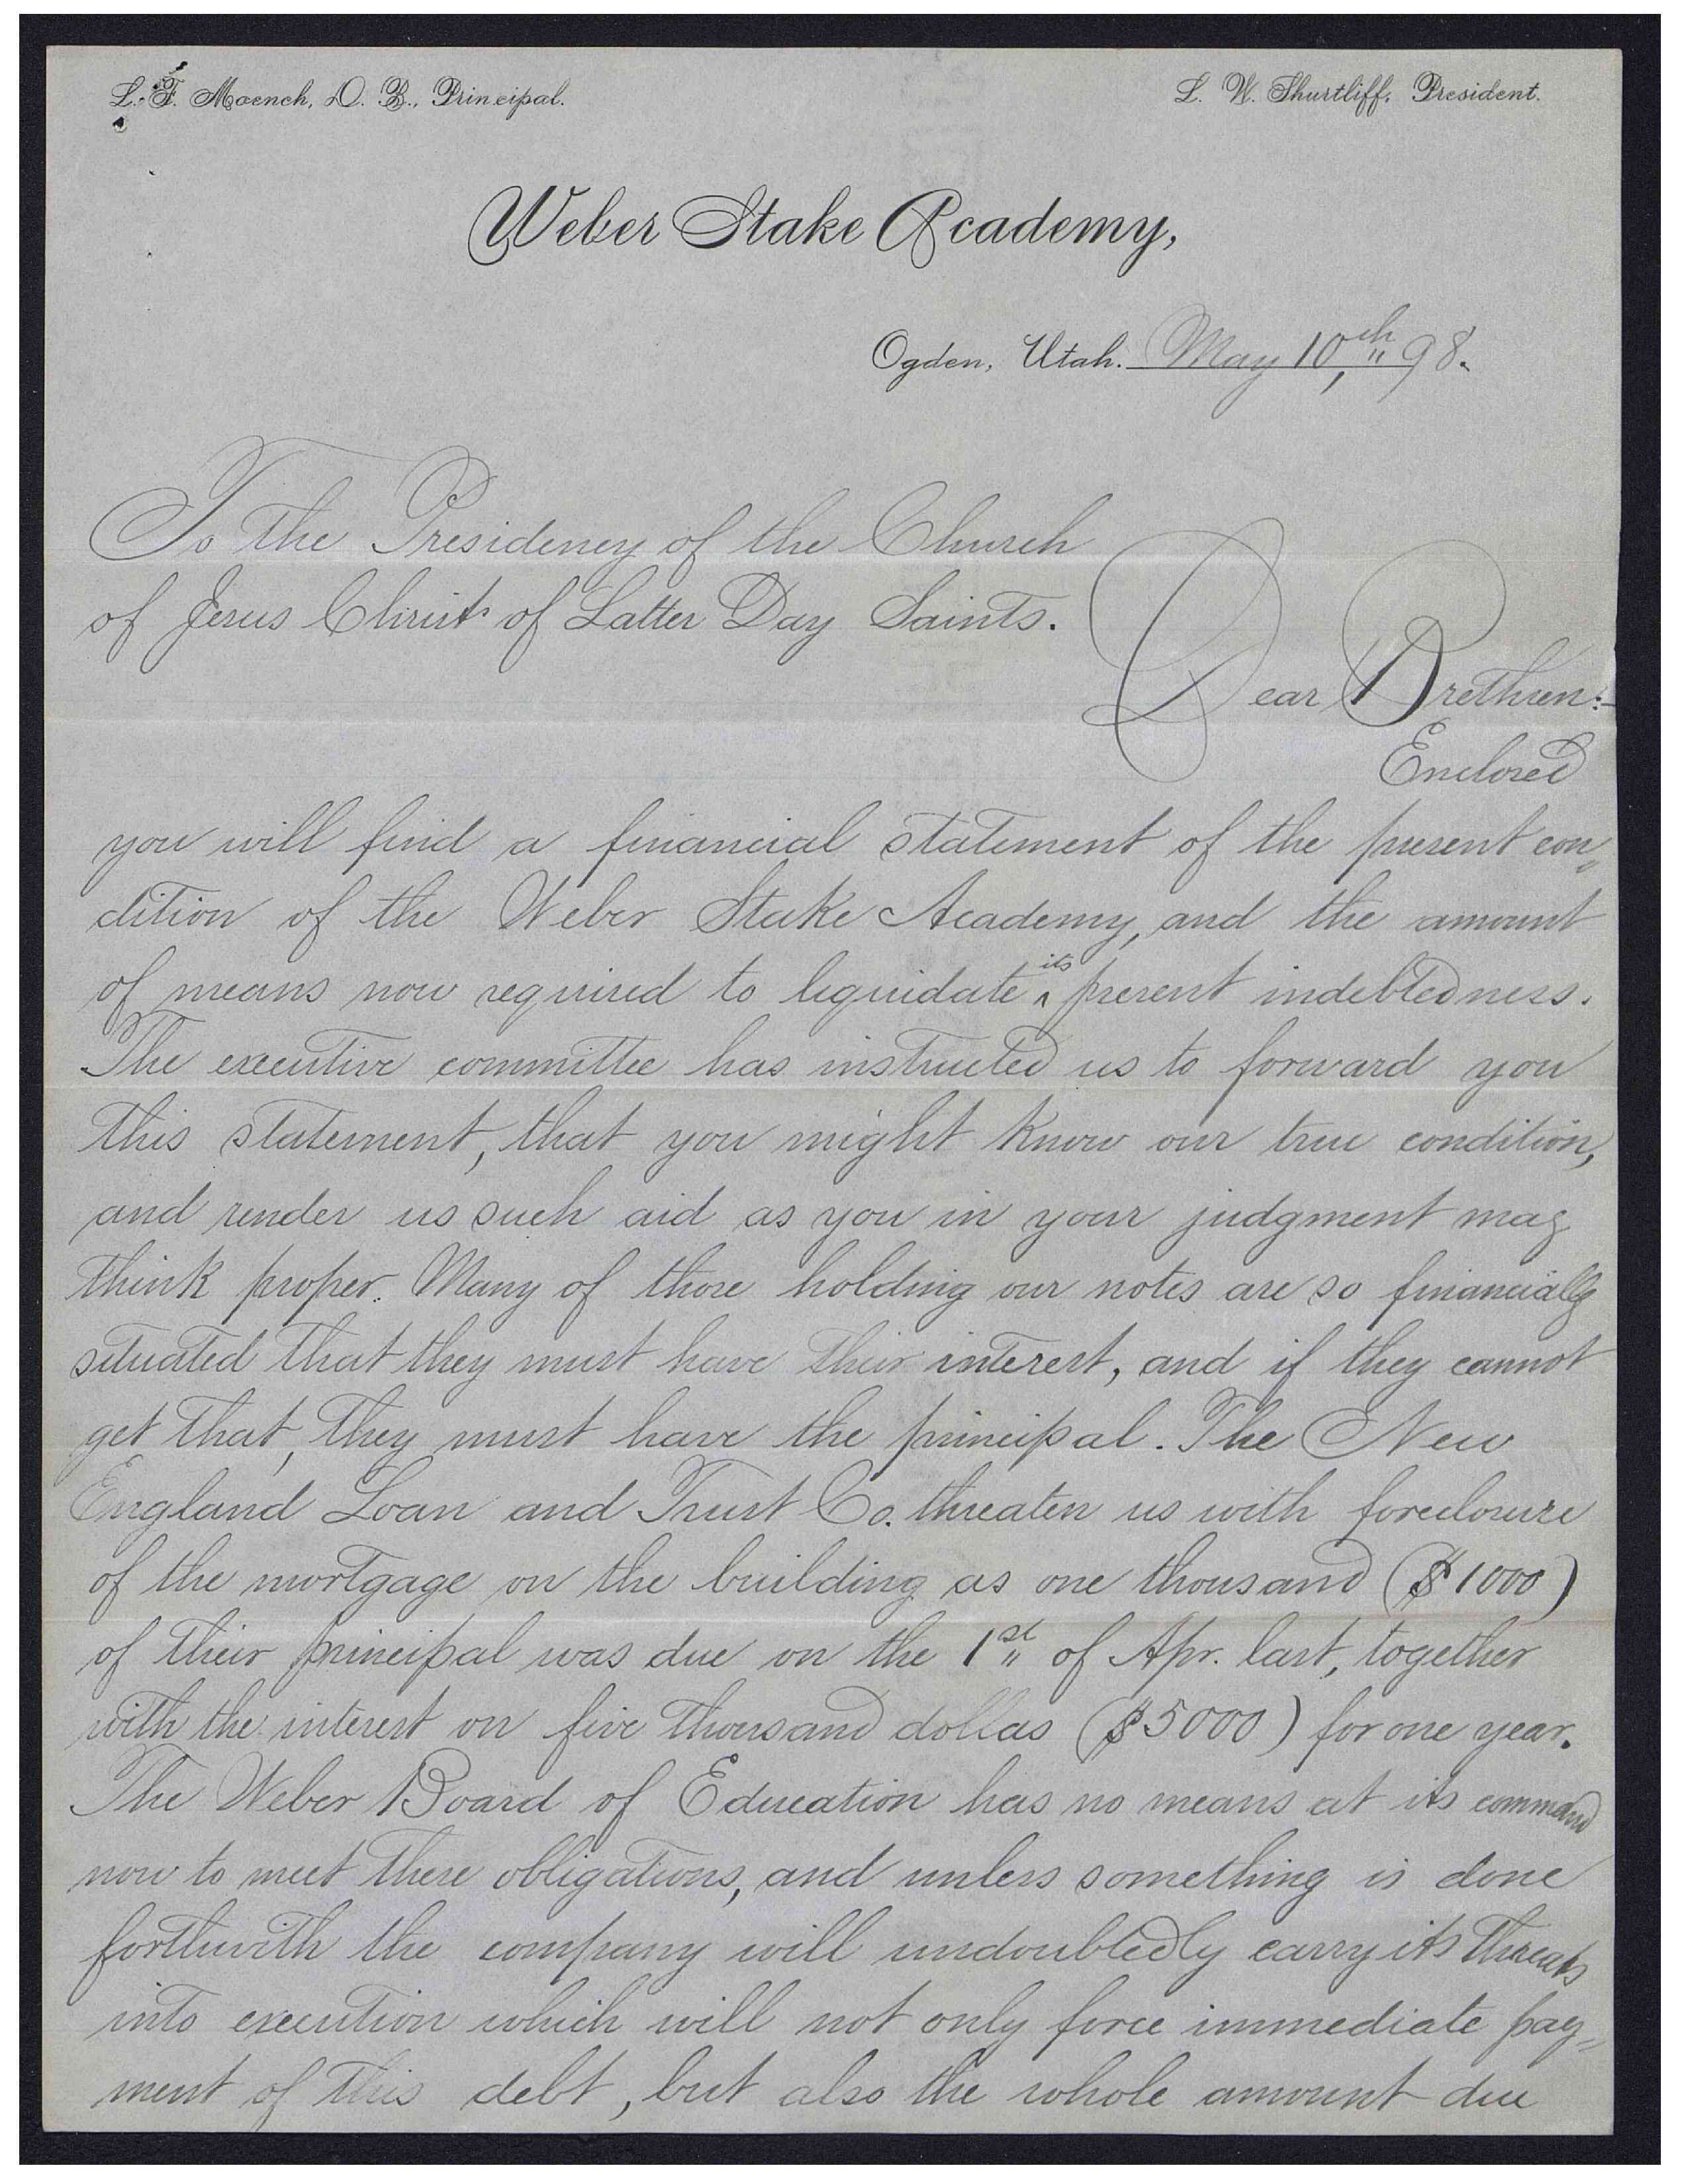 L. F. Moench, D. B., Principal.
L. W. Shurtliff, President.
Weber Stake Academy,
Ogden, Utah. May 10th, 98.
To the Presidency of the Church
of Jesus Christ of Latter Day Saints.
Dear Brethren:-
Enclosed
you will find a financial statement of the present con-
dition of the Weber Stake Academy, and the amount
of means now required to liquidate its present indebtedness.
The executive committee has instructed us to forward you
this statement, that you might know our true condition,
and render us such aid as you in your judgment may
think proper. Many of those holding our notes are so financially
situated that they must have their interest, and if they cannot
get that, they must have the principal. The New
England Loan and Trust Co. threaten us with foreclosure
of the mortgage on the building as one thousand ($1000)
of their principal was due on the 1st of Apr. last, together
with the interest on five thousand dollas ($5000) for one year.
The Weber Board of Education has no means at its command
now to meet these obligations, and unless something is done
forthwith the company will undoubtedly carry its threats
into execution which will not only force immediate pay-
ment of this debt, but also the whole amount due